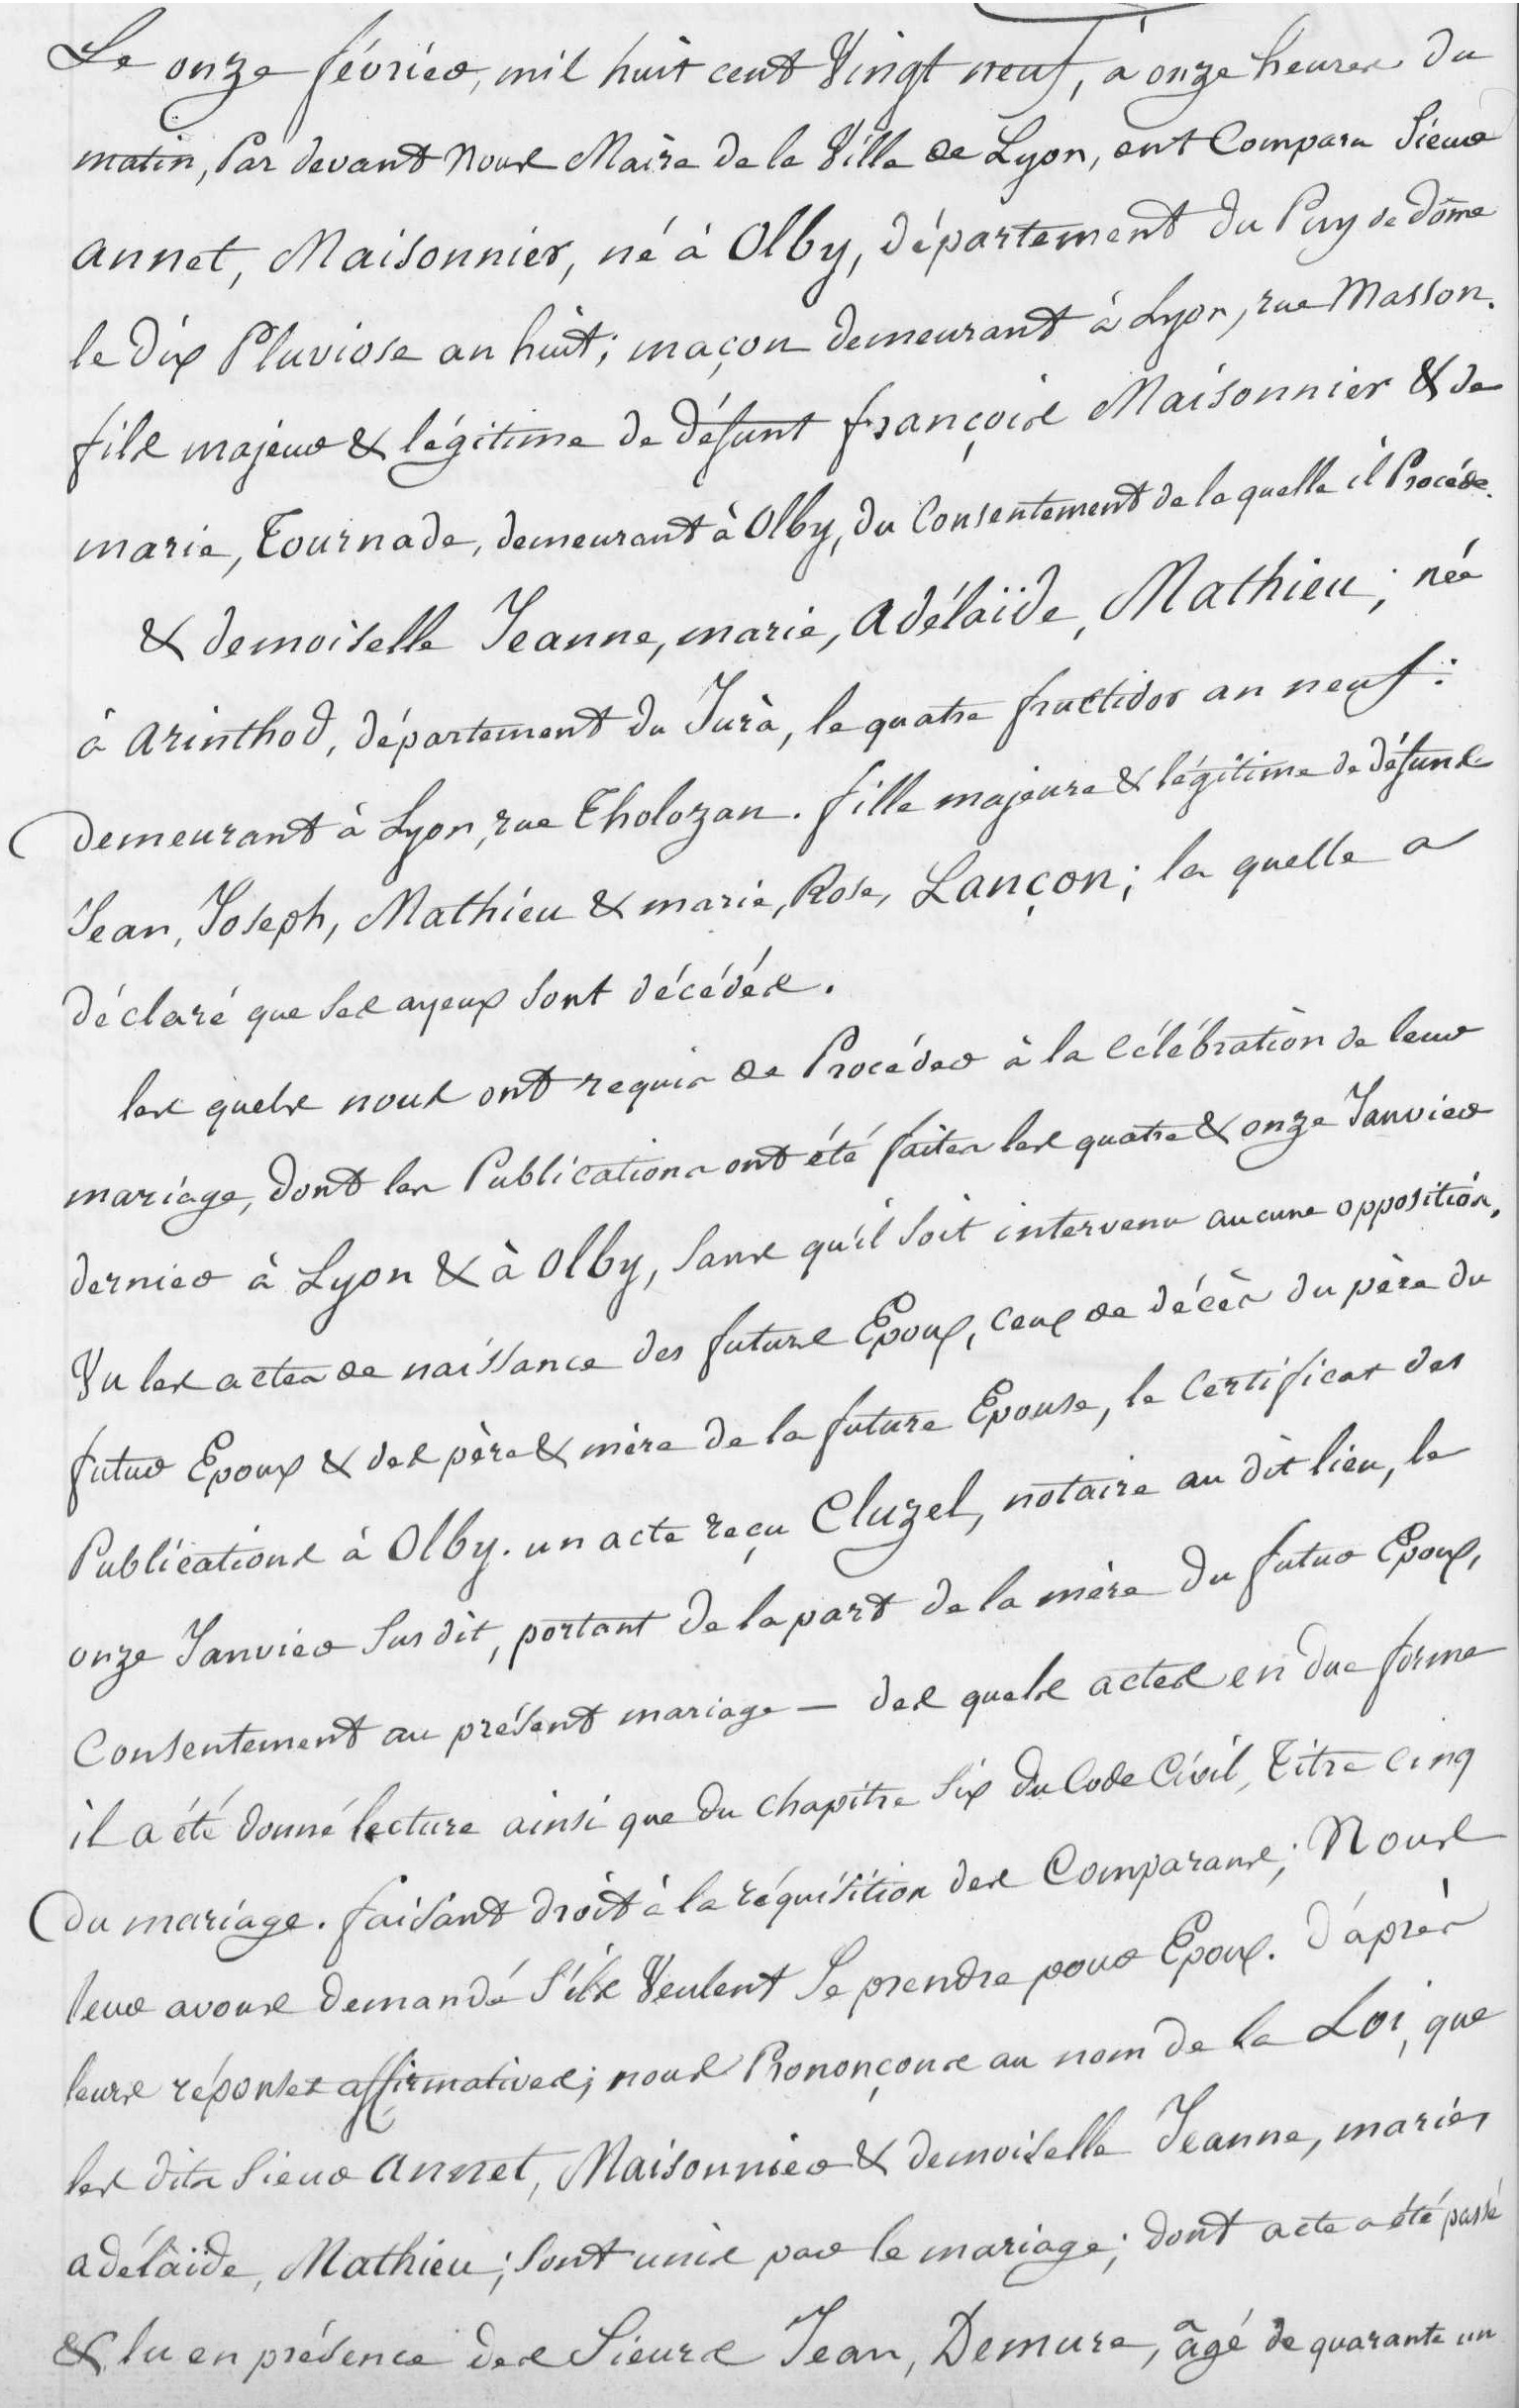 Le onze février, mil huit cent Vingt neuf, à onze heures du
matin, Par devant Nous Maire de la Ville de Lyon, ont Comparu Sieur
annet, Maisonnier, né à Olby, département du Puy de Dôme
le dix Pluviose an huit; maçon demeurant à Lyon, rue Masson.
fils majeur & légitime de défunt françois Maisonnier & de
marie, Tournade, demeurant à Olby, du Consentement de la quelle il Procéde.
& demoiselle Jeanne, marie, Adélaïde, Mathieu; née
à arinthod, département du Jura, le quatre fructidor an neuf:
demeurant à Lyon, rue Tholozan. fille majeure & légitime de défunts
Jean, Joseph, Mathieu & marie, Rose, Lançon; la quelle a
déclaré que ses ayeux sont décédés.
les quels nous ont requis de Procéder à la célébration de leur
mariage, dont les Publications ont été faites les quatre & onze Janvier
dernier à Lyon & à Olby, sans qu'il soit intervenu aucune opposition,
Vu les actes de naissance des futurs Epoux, ceux de décès du père du
futur Epoux & des père & mère de la future Epouse, le Certificat des
Publications à Olby. un acte reçu Cluzel, notaire au dit lieu, le
onze Janvier Sus dit, portant de la part de la mère du futur Epoux,
Consentement au présent mariage — des quels actes en due forme
il a été donné lecture ainsi que du chapitre Six du Code Civil, Titre cinq
du mariage. faisant droit à la réquisition des Comparans; Nous
leur avons demandé s'ils Veulent Se prendre pour Epoux. d'après
leurs réponses affirmatives; nous Prononçons au nom de la Loi, que
les dits Sieur Annet, Maisonnier & demoiselle Jeanne, marie,
adélaïde, Mathieu; sont unis par le mariage; dont acte a été passé
& lu en présence des Sieurs Jean, Demure, âgé de quarante un